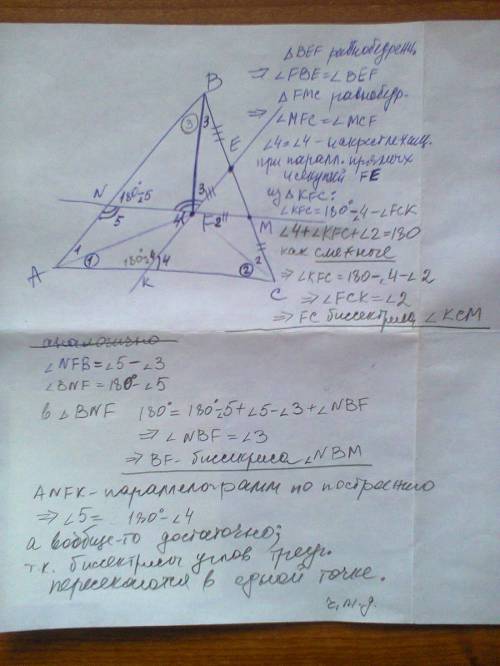 ΔBEF равнобедренн.
⇒ ∠FBE=∠BEF
ΔFMC равнобедр-
⇒ ∠MFC=∠MCF
∠4=∠4 - накрест лежащ.
при паралл. прямых
и секущей FE
из ΔKFC:
∠KFC=180°-∠4-∠FCK
∠4+∠KFC+∠2=180
как смежные
⇒ ∠KFC=180-∠4-∠2
⇒ ∠FCK=∠2
⇒ FC биссектриса ∠KCM
B
3
3
E
N
180°-∠5
5
3
4
F
2
M
A
1
1
180°-∠4
4
2
2
K
C
аналогично
∠NFB=∠5-∠3
∠BNF=180°-∠5
в ∠BNF 180°=180°-∠5+∠5-∠3+∠NBF
⇒ ∠NBF=∠3
⇒ BF- биссектриса ∠NBM
ANFK-параллелограмм по построению
⇒ ∠5= 180°-∠4
а вообще-то достаточно;
т.к. биссектрисы углов треуг.
пересекаются в одной точке.
ч.т.д.